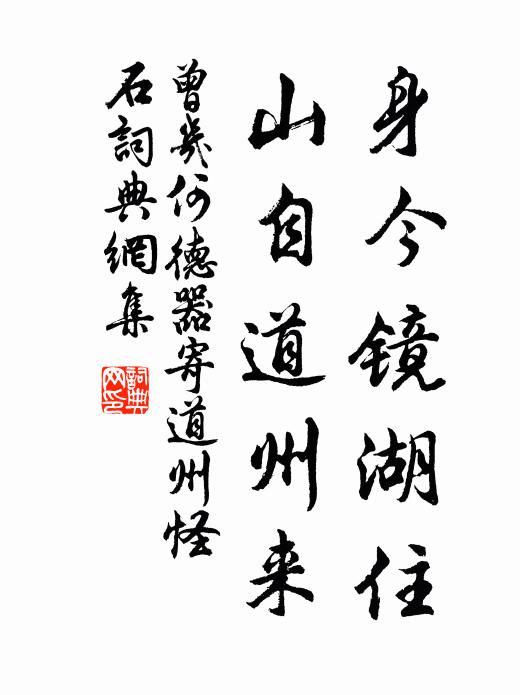 身今镜湖住
山自道州来
曾幾何德器寄道州怪
石詞典網集
詞典網印